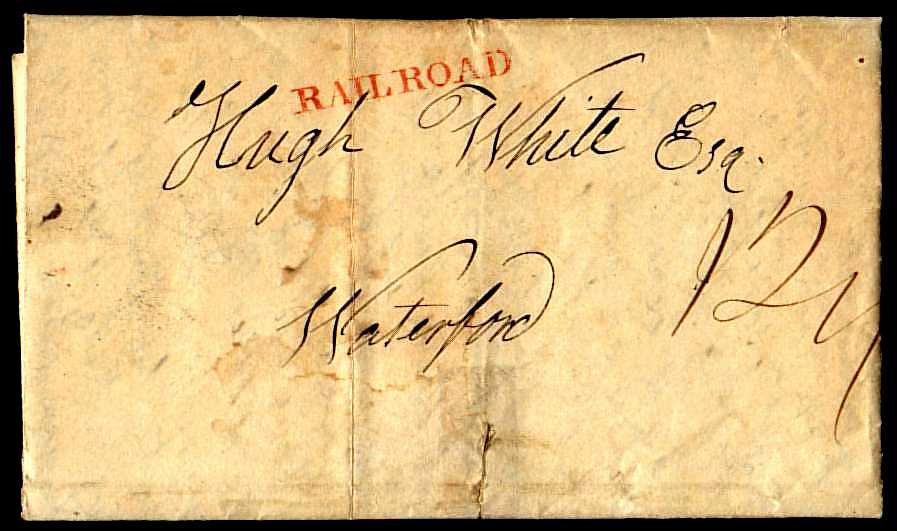 RAILROAD
Hugh White Esq.
12½
Waterford